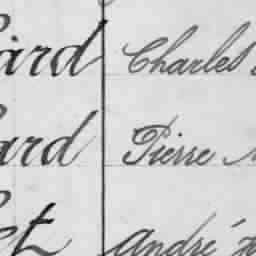 ard Charles
ard Pierre
et André